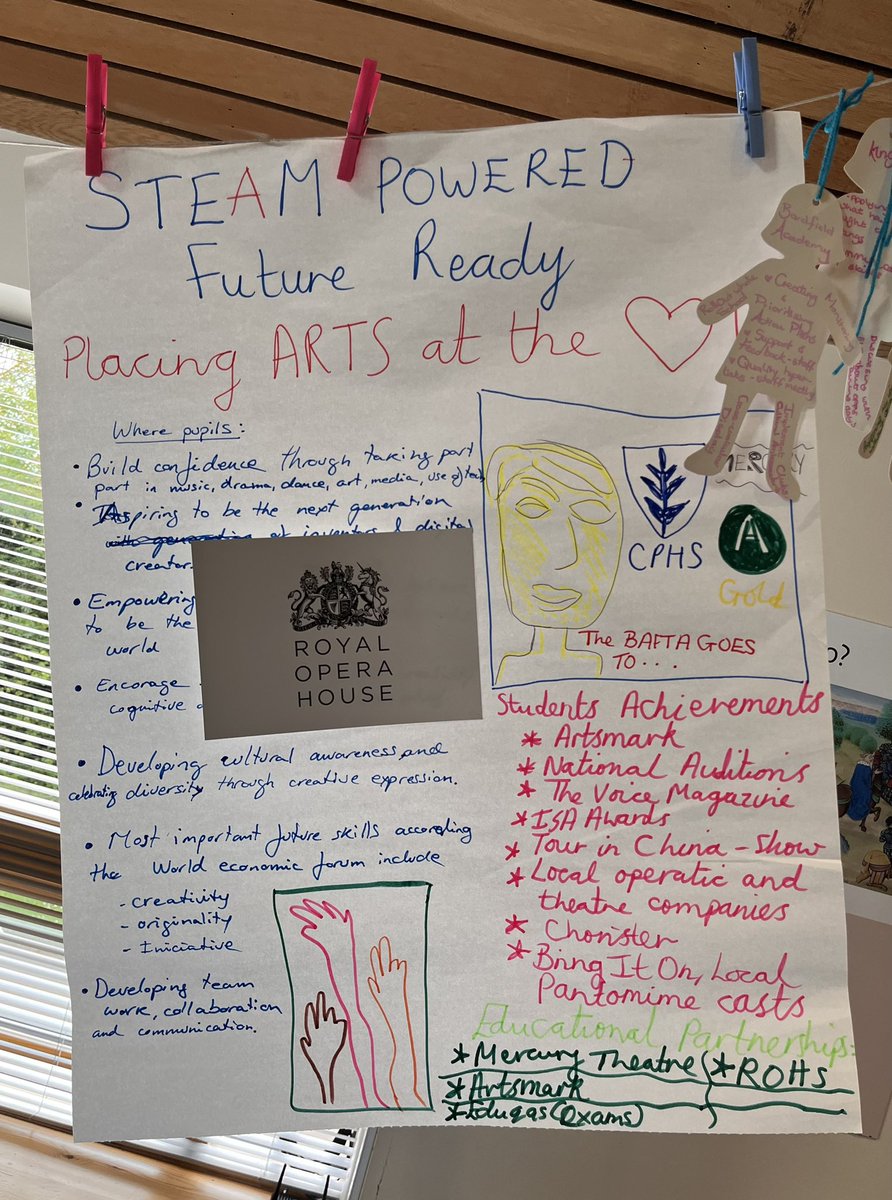 STEAM POWERED
Future Ready
Placing ARTS at the
Where pupils:
• Build confidence through taking part
part in music, drama, dance, art, media, use of
• Aspiring to be the next generation
of inventors & digital
creator
• Empowering
to be the
world
• Encorage
cognitive
• Developing cultural awareness and
celebrating diversity through creative expression.
• Most important future skills according
the World economic forum include
- creativity
- originality
- Iniciative
• Developing team
work, collaboration
and communication.
ROYAL
OPERA
HOUSE
CPHS
MERCURY
A
Gold
The BAFTA GOES
TO...
Students Achievements
* Artsmark
* National Auditions
* The Voice Magazine
* ISA Awards
* Tour in China - Show
* Local operatic and
theatre companies
* Chorister
* Bring It On, Local
Pantomime casts
Educational Partnerships:
* Mercury Theatre
* ROHS
* Artsmark
* Eduqas (Exams)
Bardfield
Academy
* Creating
&
Prioritising
Action Plans
* Support &
feedback - staff
* Quality
Monitoring